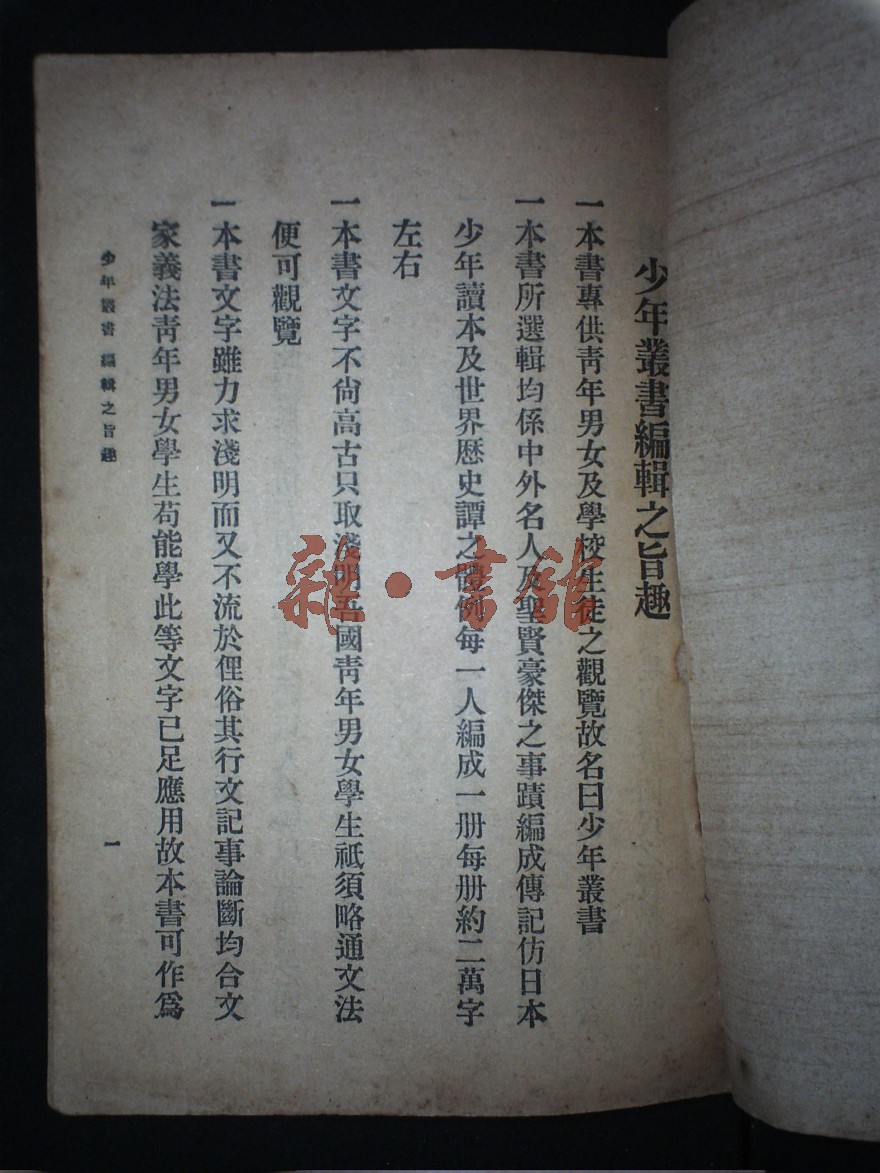 少年叢書編輯之旨趣
一本書專供靑年男女及學校生徒之觀覽故名曰少年叢書
一本書所選輯均係中外名人及聖賢豪傑之事蹟編成傳記仿日本
少年讀本及世界歷史譚之體例每一人編成一册每册約二萬字
左右
一本書文字不尙高古只取淺明吾國靑年男女學生祇須略通文法
便可觀覽
一本書文字雖力求淺明而又不流於俚俗其行文記事論斷均合文
家義法靑年男女學生苟能學此等文字已足應用故本書可作爲
少年叢書 編輯之旨趣
一
雜·書館